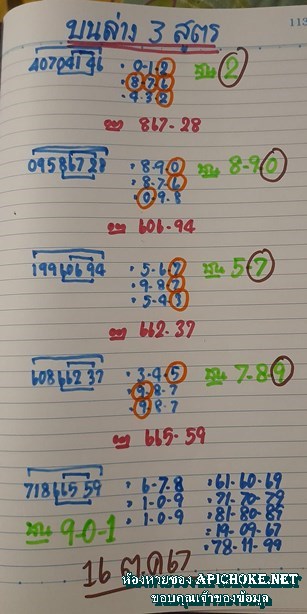 บนล่าง 3 สูตร
113
407041 46 · 0-1-2 ชน 2
· 8-7-6
· 9-3-2
867-28
095867 28 · 8-9-0 ชน 8-9-0
· 8-7-6
· 0-9-8
606-94
199606 94 · 5-6-7 ชน 5-7
· 9-8-7
· 5-4-3
662-37
608662 37 · 3-4-5 ชน 7-8-9
· 9-8-7
· 9-8-7
665-59
718665 59 · 6-7-8 · 61-60-69
ชน 9-0-1 · 1-0-9 · 71-70-79
· 1-0-9 · 81-80-89
· 14-09-67
· 78-11-99
16 ต.ค 67
ห้องหวยซอง APICHOKE.NET
ขอบคุณเจ้าของข้อมูล